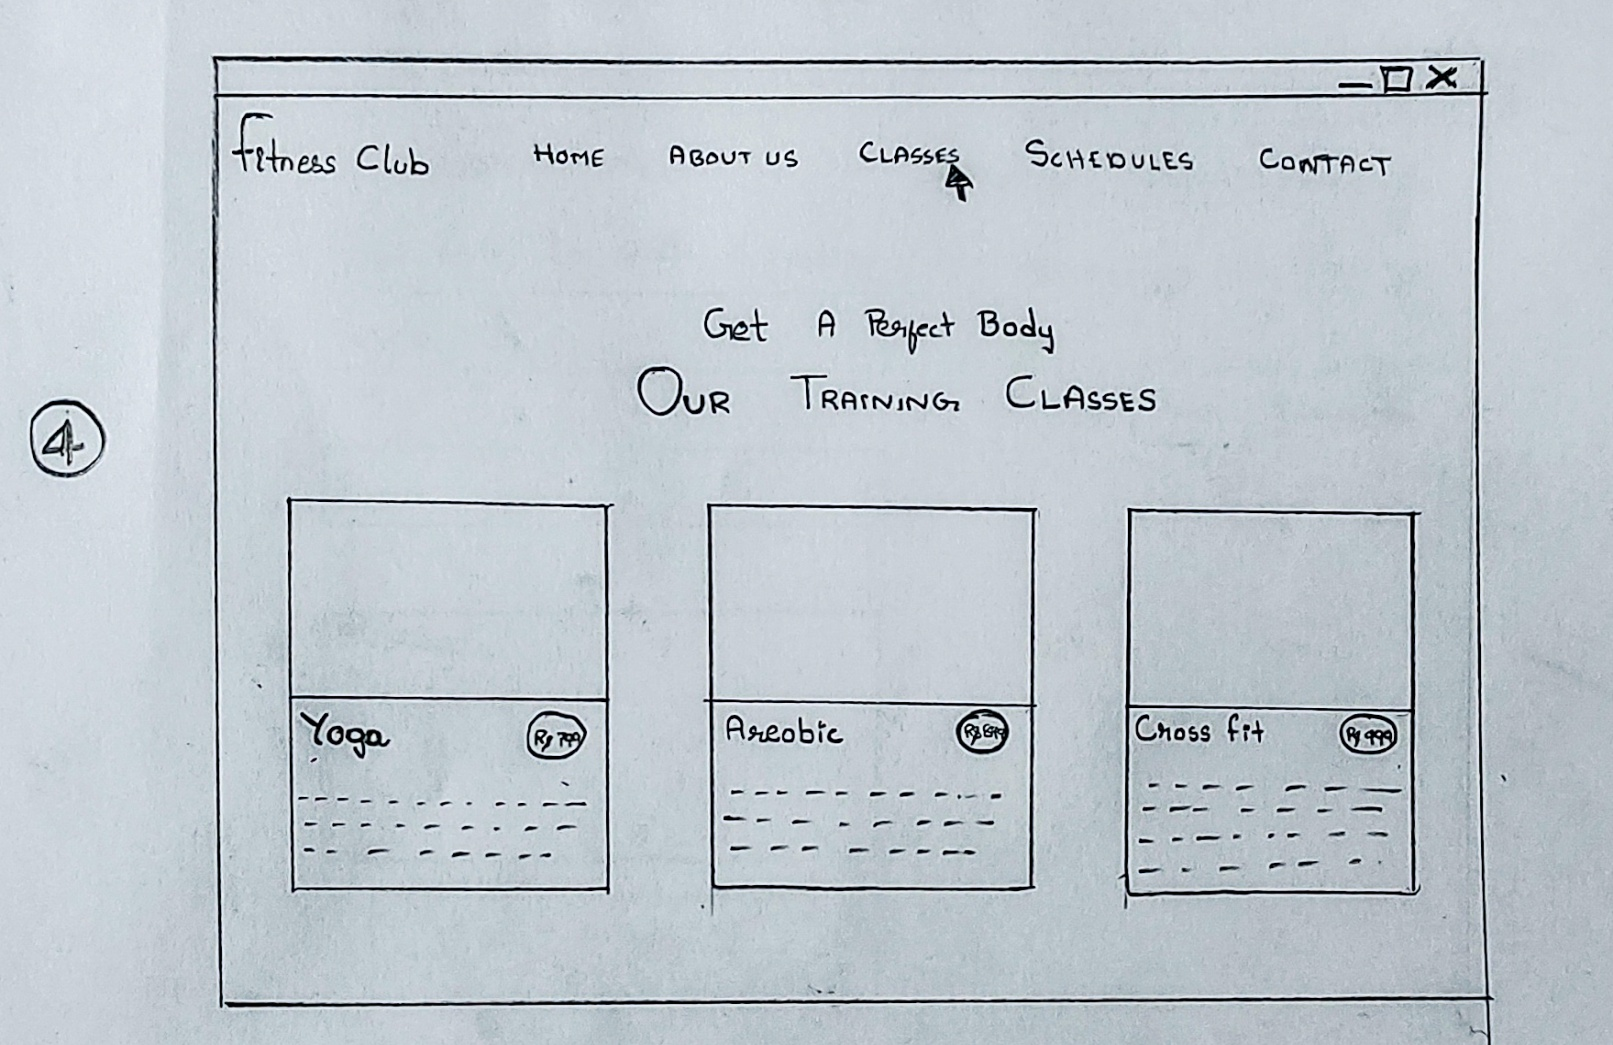 Fitness Club HOME ABOUT US CLASSES SCHEDULES CONTACT
Get A Perfect Body
OUR TRAINING CLASSES
4
Yoga Rs 799 Areobic Rs Cross fit Rs 999